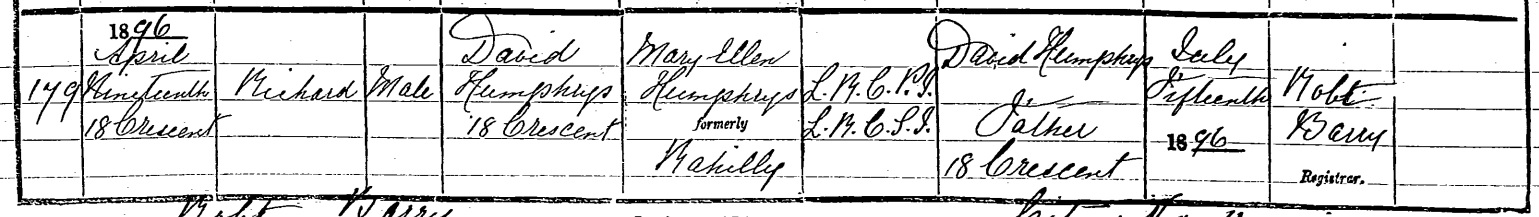 179
1896
April
Nineteenth
18 Crescent
Richard
Male
David
Humphrys
18 Crescent
Mary Ellen
Humphrys
formerly
Rahilly
L.R.C.P.I.
L.R.C.S.I.
David Humphrys
Father
18 Crescent
July
Fifteenth
1896
Robt
Barry
Registrar.
Robt Barry